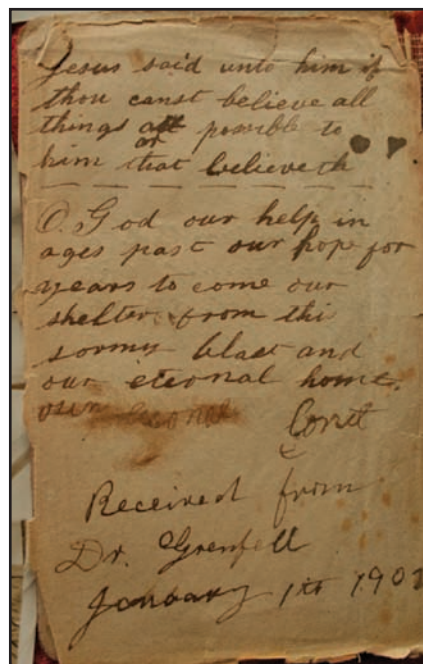 Jesus said unto him if
thou canst believe all
things are possible to
him that believeth
O. God our help in
ages past our hope for
years to come our
shelter from thi
sormy blast and
our eternal home.
Received from
Dr. Grenfell
January 1st